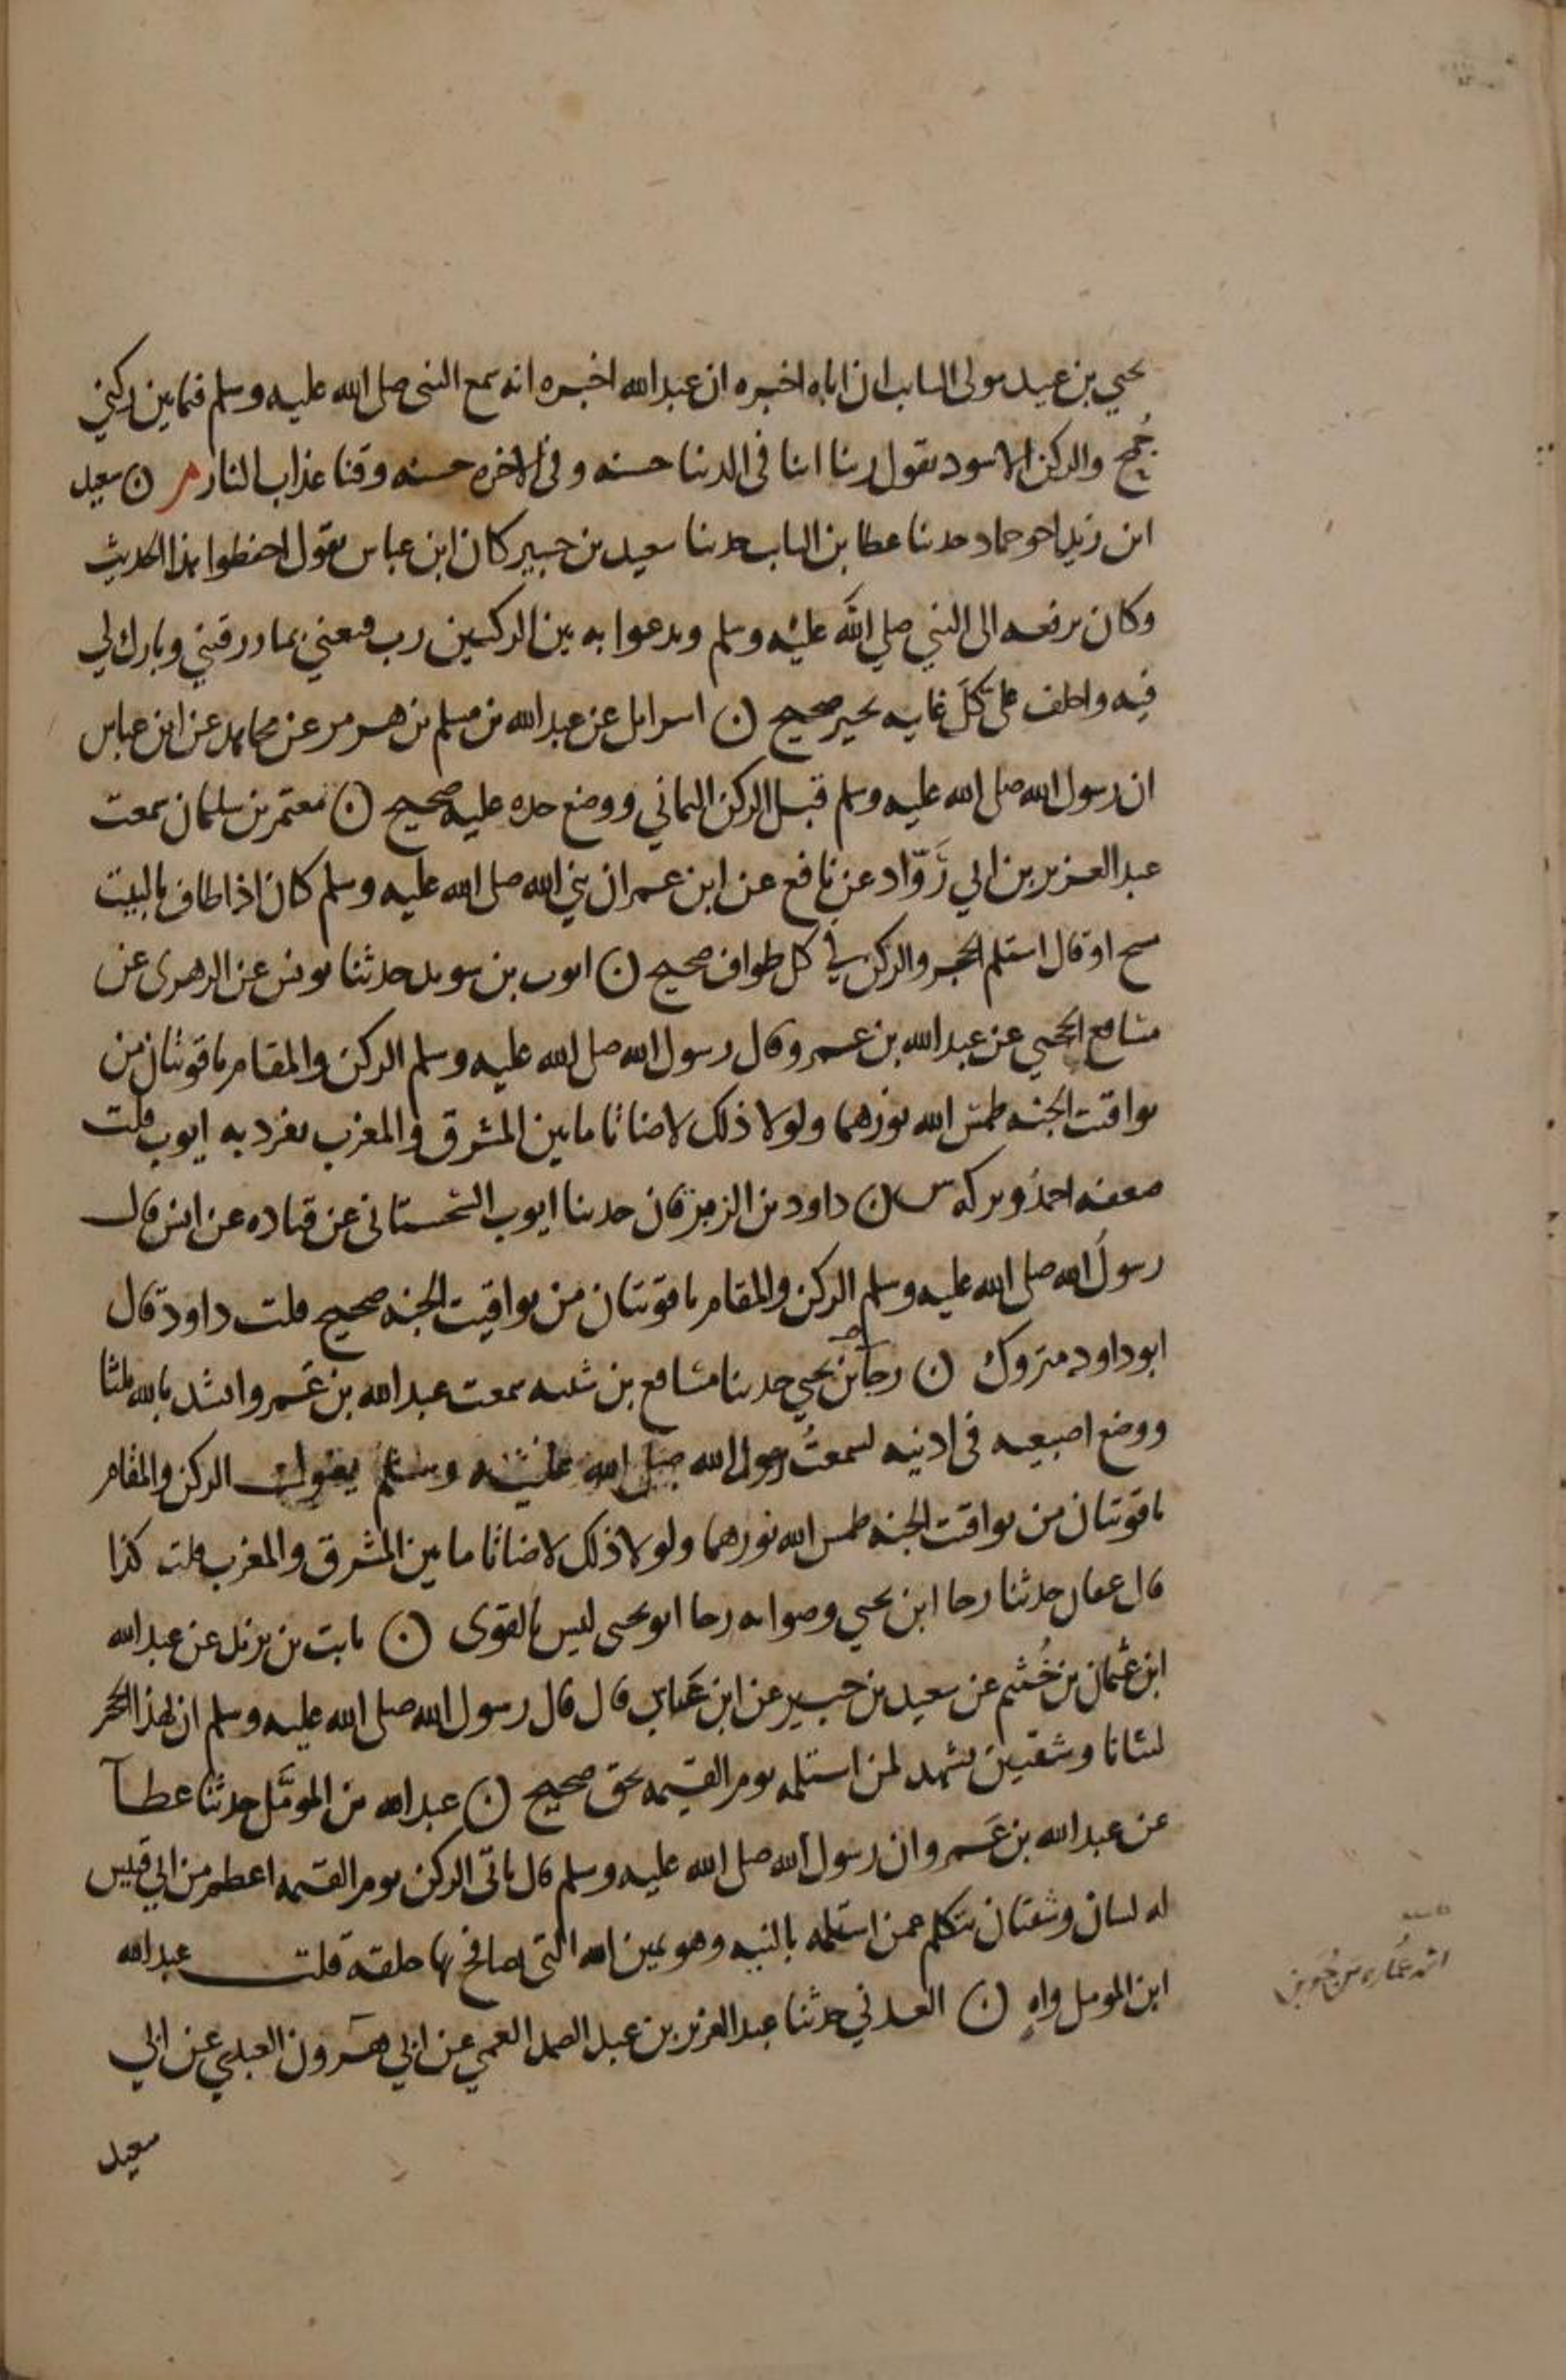 يحيى بن عبيد مولى السايب ان اباه اخبره ان عبد الله اخبره انه سمع النبى صلى الله عليه وسلم فيما بين ركني
جُمح والركن الاسود يقول ربنا اتنا فى الدنيا حسنه وفى الاخره حسنه وقنا عذاب النار م ن سعيد
ابن زيد اخو حماد حدثنا عطا بن السايب حدثنا سعيد بن جبير كان ابن عباس يقول احفظوا هذا الحديث
وكان يرفعه الى النبي صلي الله عليه وسلم ويدعوا به بين الركنين رب قنعني بما رزقتني وبارك لي
فيه واخلف على كل غايبه بخير صحيح ن اسرايل عن عبد الله بن مسلم بن هرمز عن مجاهد عن ابن عباس
ان رسول الله صلى الله عليه وسلم قبل الركن اليماني ووضع خده عليه صحيح ن معتمر بن سليمان سمعت
عبد العزيز بن ابي رَوّاد عن نافع عن ابن عمر ان نبي الله صلى الله عليه وسلم كان اذا طاف بالبيت
مسح او قال استلم الحجر والركن في كل طواف صحيح ن ايوب بن سويد حدثنا يونس عن الزهرى عن
مسافع الحجبي عن عبد الله بن عمرو قال رسول الله صلى الله عليه وسلم الركن والمقام ياقوتتان من
يواقيت الجنه طمس الله نورهما ولولا ذلك لاضاتا ما بين المشرق والمغرب تفرد به ايوب قلت
ضعفه احمدُ وتركه س ن داود بن الزبرقان حدثنا ايوب السختياني عن قتاده عن انس قال
رسولُ الله صلى الله عليه وسلم الركن والمقام ياقوتتان من يواقيت الجنه صحيح قلت داود قال
ابو داود متروك ن رجا بن يحيي حدثنا مسافع بن شيبه سمعت عبد الله بن عَمرو انشد بالله ثلثا
ووضع اصبعيه فى اذنيه لسمعتُ رسول الله صلى الله عليه وسلم يقول الركن والمقام
ياقوتتان من يواقيت الجنه طمس الله نورهما ولولا ذلك لاضاتا ما بين المشرق والمغرب قلت كذا
قال عفان حدثنا رجا ابن يحيي وصوابه رجا ابو يحيى ليس بالقوى ن ثابت بن يزيد عن عبد الله
ابن عثمان بن خُثيم عن سعيد بن جبير عن ابن عَباس قال قال رسول الله صلى الله عليه وسلم ان لهذا الحجر
لسانا وشفتين يشهد لمن استلمه يوم القيمه بحق صحيح ن عبد الله بن المومَّل حدثنا عطآ
عن عبد الله بن عَمرو ان رسول الله صلى الله عليه وسلم قال ياتى الركن يوم القيمه اعظم من ابي قبيس
له لسان وشفتان يتكلم عمن استلمه بالنيه وهو يمين الله التى يصافح بها خلقه قلت عبد الله
ابن المومل واهٍ ن العدني حدثنا عبد العزيز بن عبد الصمد العمي عن ابي هرون العبدي عن ابي
سعيد
عُمارة بن جُوَين